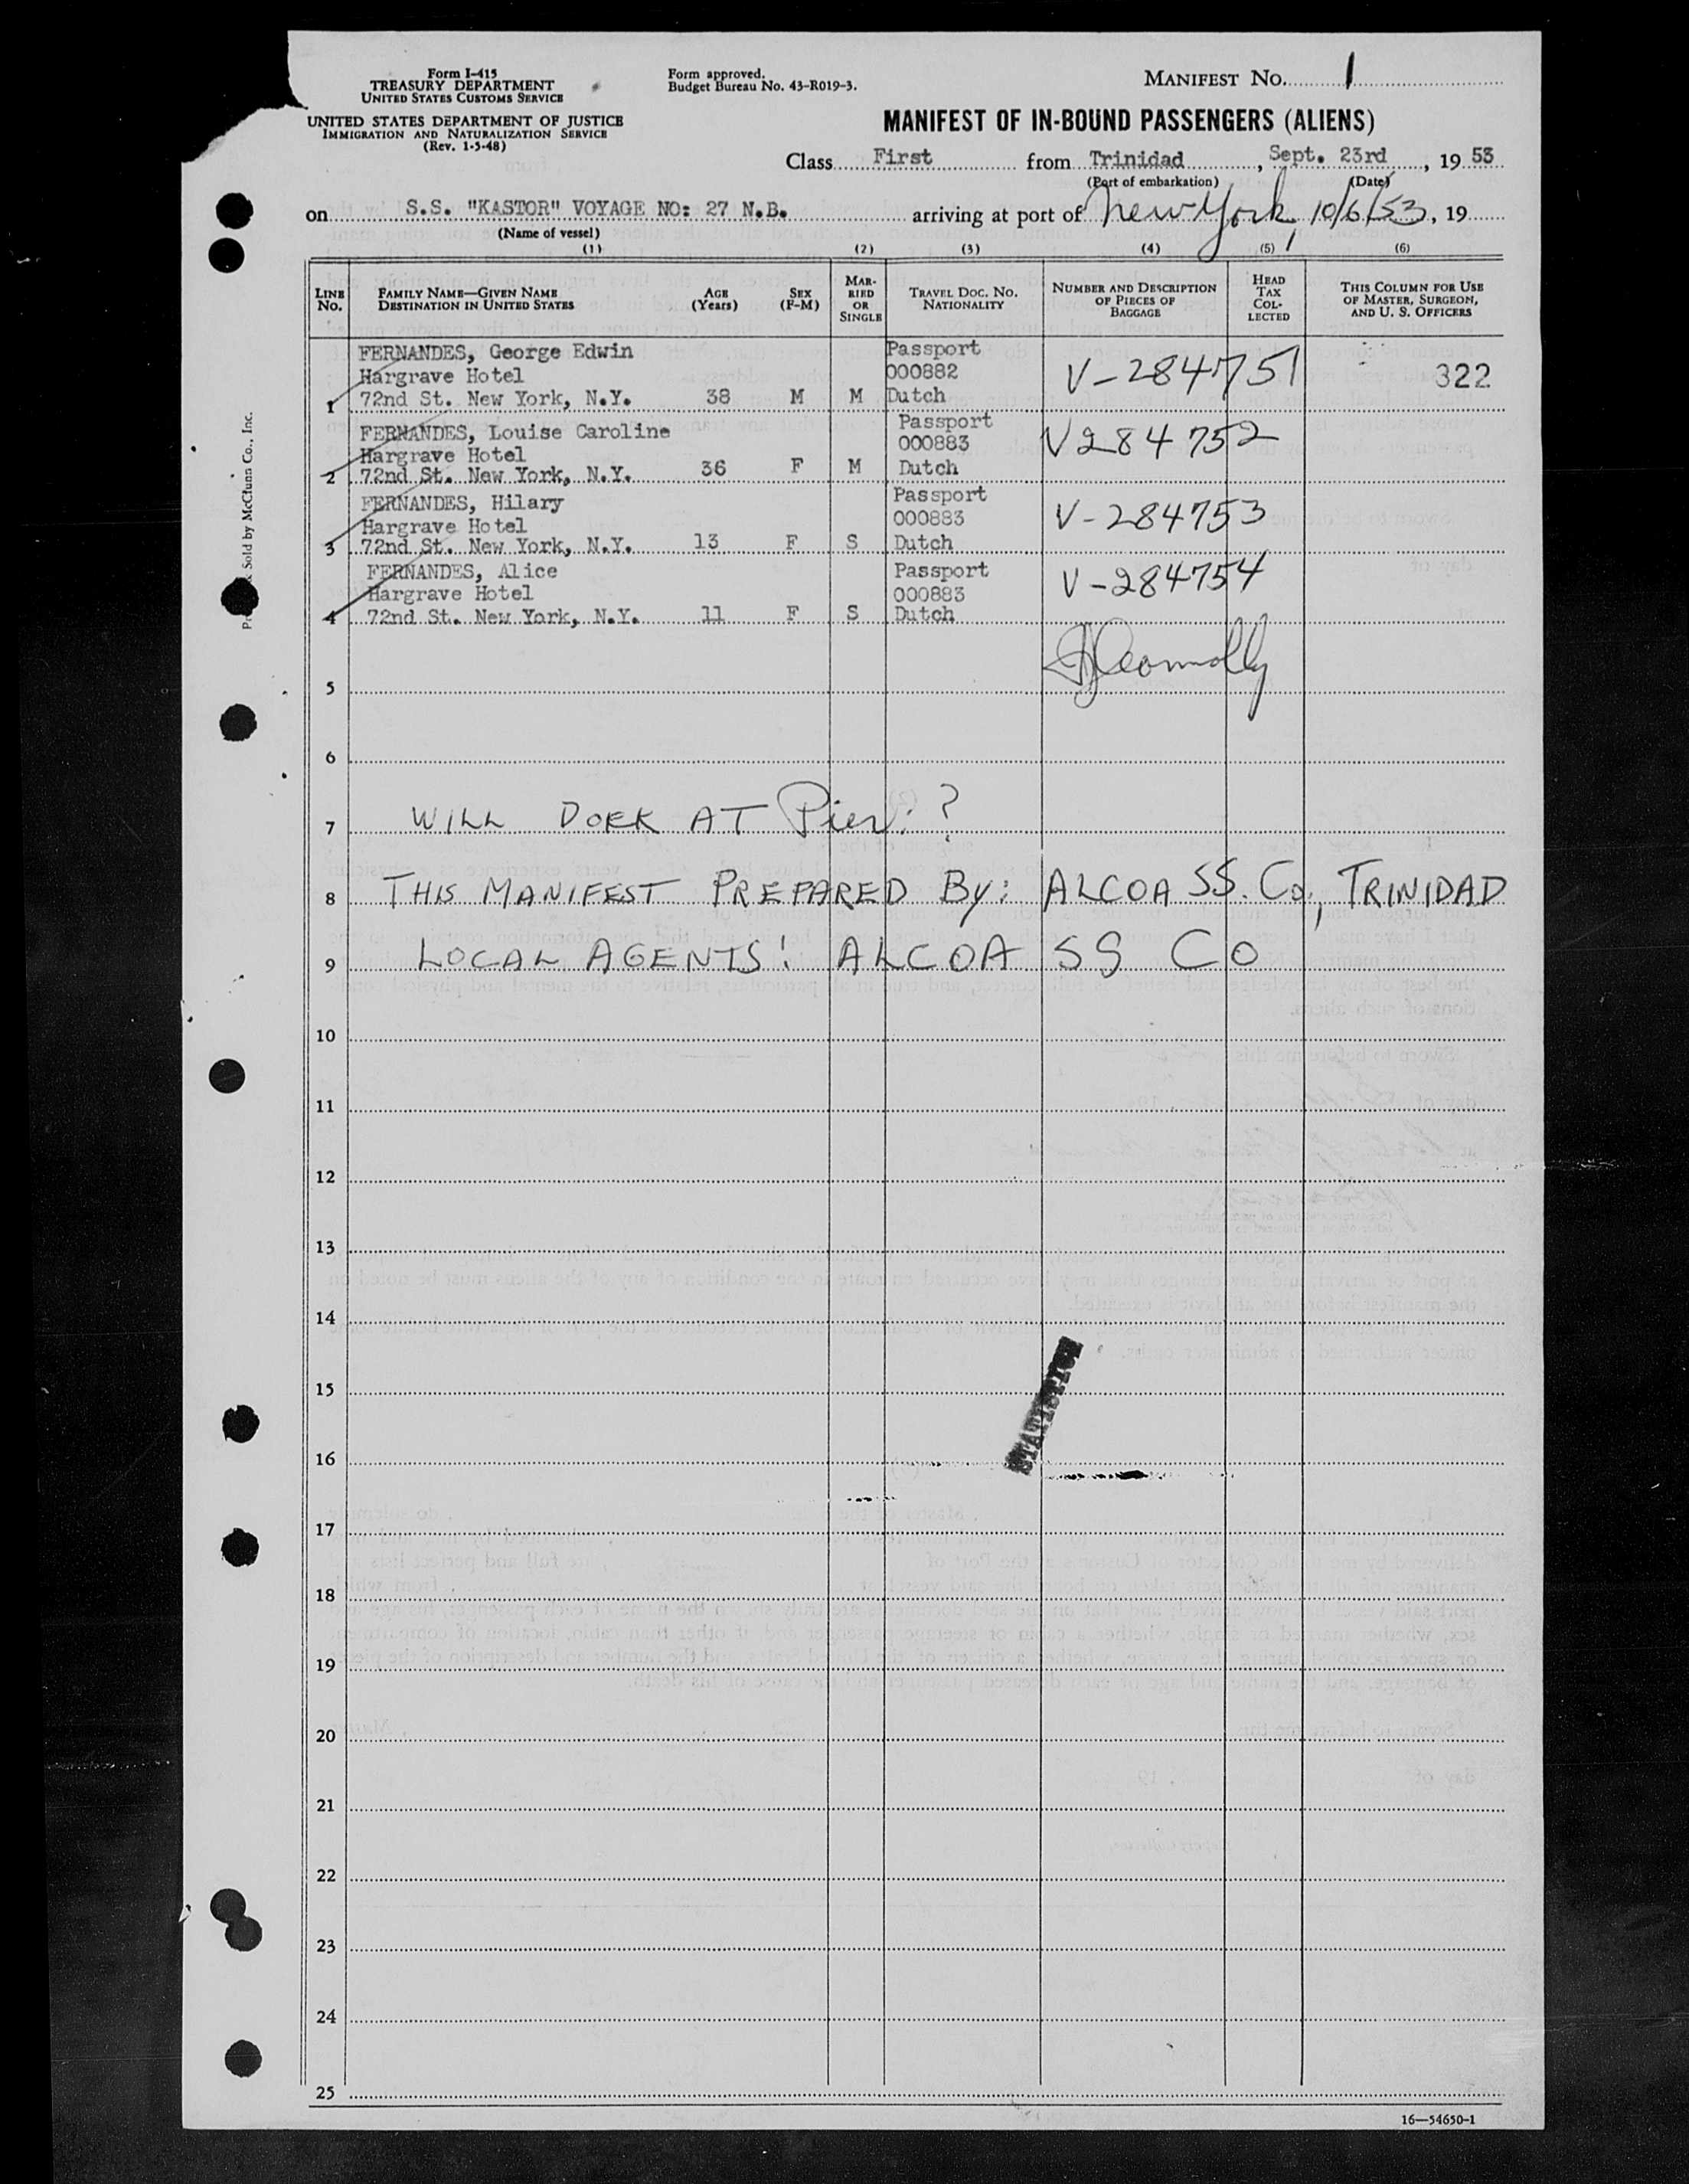 Form I-415
TREASURY DEPARTMENT
UNITED STATES CUSTOMS SERVICE
UNITED STATES DEPARTMENT OF JUSTICE
IMMIGRATION AND NATURALIZATION SERVICE
(Rev. 1-5-48)
Form approved.
Budget Bureau No. 43-R019-3.
MANIFEST NO. 1
MANIFEST OF IN-BOUND PASSENGERS (ALIENS)
Class First from Trinidad, Sept. 23rd, 19 53
(Port of embarkation) (Date)
on S.S. "KASTOR" VOYAGE NO: 27 N.B. arriving at port of New York, 10/6/53, 19
(Name of vessel)
(1) (2) (3) (4) (5) (6)
LINE NO. FAMILY NAME—GIVEN NAME DESTINATION IN UNITED STATES AGE (Years) SEX (F-M) MARRIED OR SINGLE TRAVEL DOC. NO. NATIONALITY NUMBER AND DESCRIPTION OF PIECES OF BAGGAGE HEAD TAX COLLECTED THIS COLUMN FOR USE OF MASTER, SURGEON, AND U. S. OFFICERS
FERNANDES, George Edwin Passport
Hargrave Hotel 000882 V-284751 322
1 72nd St. New York, N.Y. 38 M M Dutch
FERNANDES, Louise Caroline Passport
Hargrave Hotel 000883 V284752
2 72nd St. New York, N.Y. 36 F M Dutch
FERNANDES, Hilary Passport
Hargrave Hotel 000883 V-284753
3 72nd St. New York, N.Y. 13 F S Dutch
FERNANDES, Alice Passport
Hargrave Hotel 000883 V-284754
4 72nd St. New York, N.Y. 11 F S Dutch
5
6
7 WILL DOCK AT Pier: ?
8 THIS MANIFEST PREPARED By: ALCOA SS. Co, TRINIDAD
9 LOCAL AGENTS: ALCOA SS CO
10
11
12
13
14
15
16
17
18
19
20
21
22
23
24
25
16—54650-1
Sold by McClunn Co., Inc.